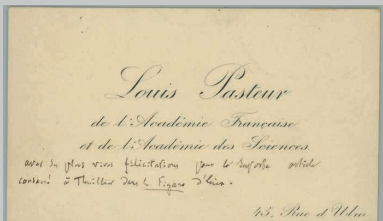 Louis Pasteur
de l'Académie Française
et de l'Académie des Sciences
avec ses plus vives félicitations pour le superbe article
consacré à Thuillier dans le Figaro d'hier.
45, Rue d'Ulm